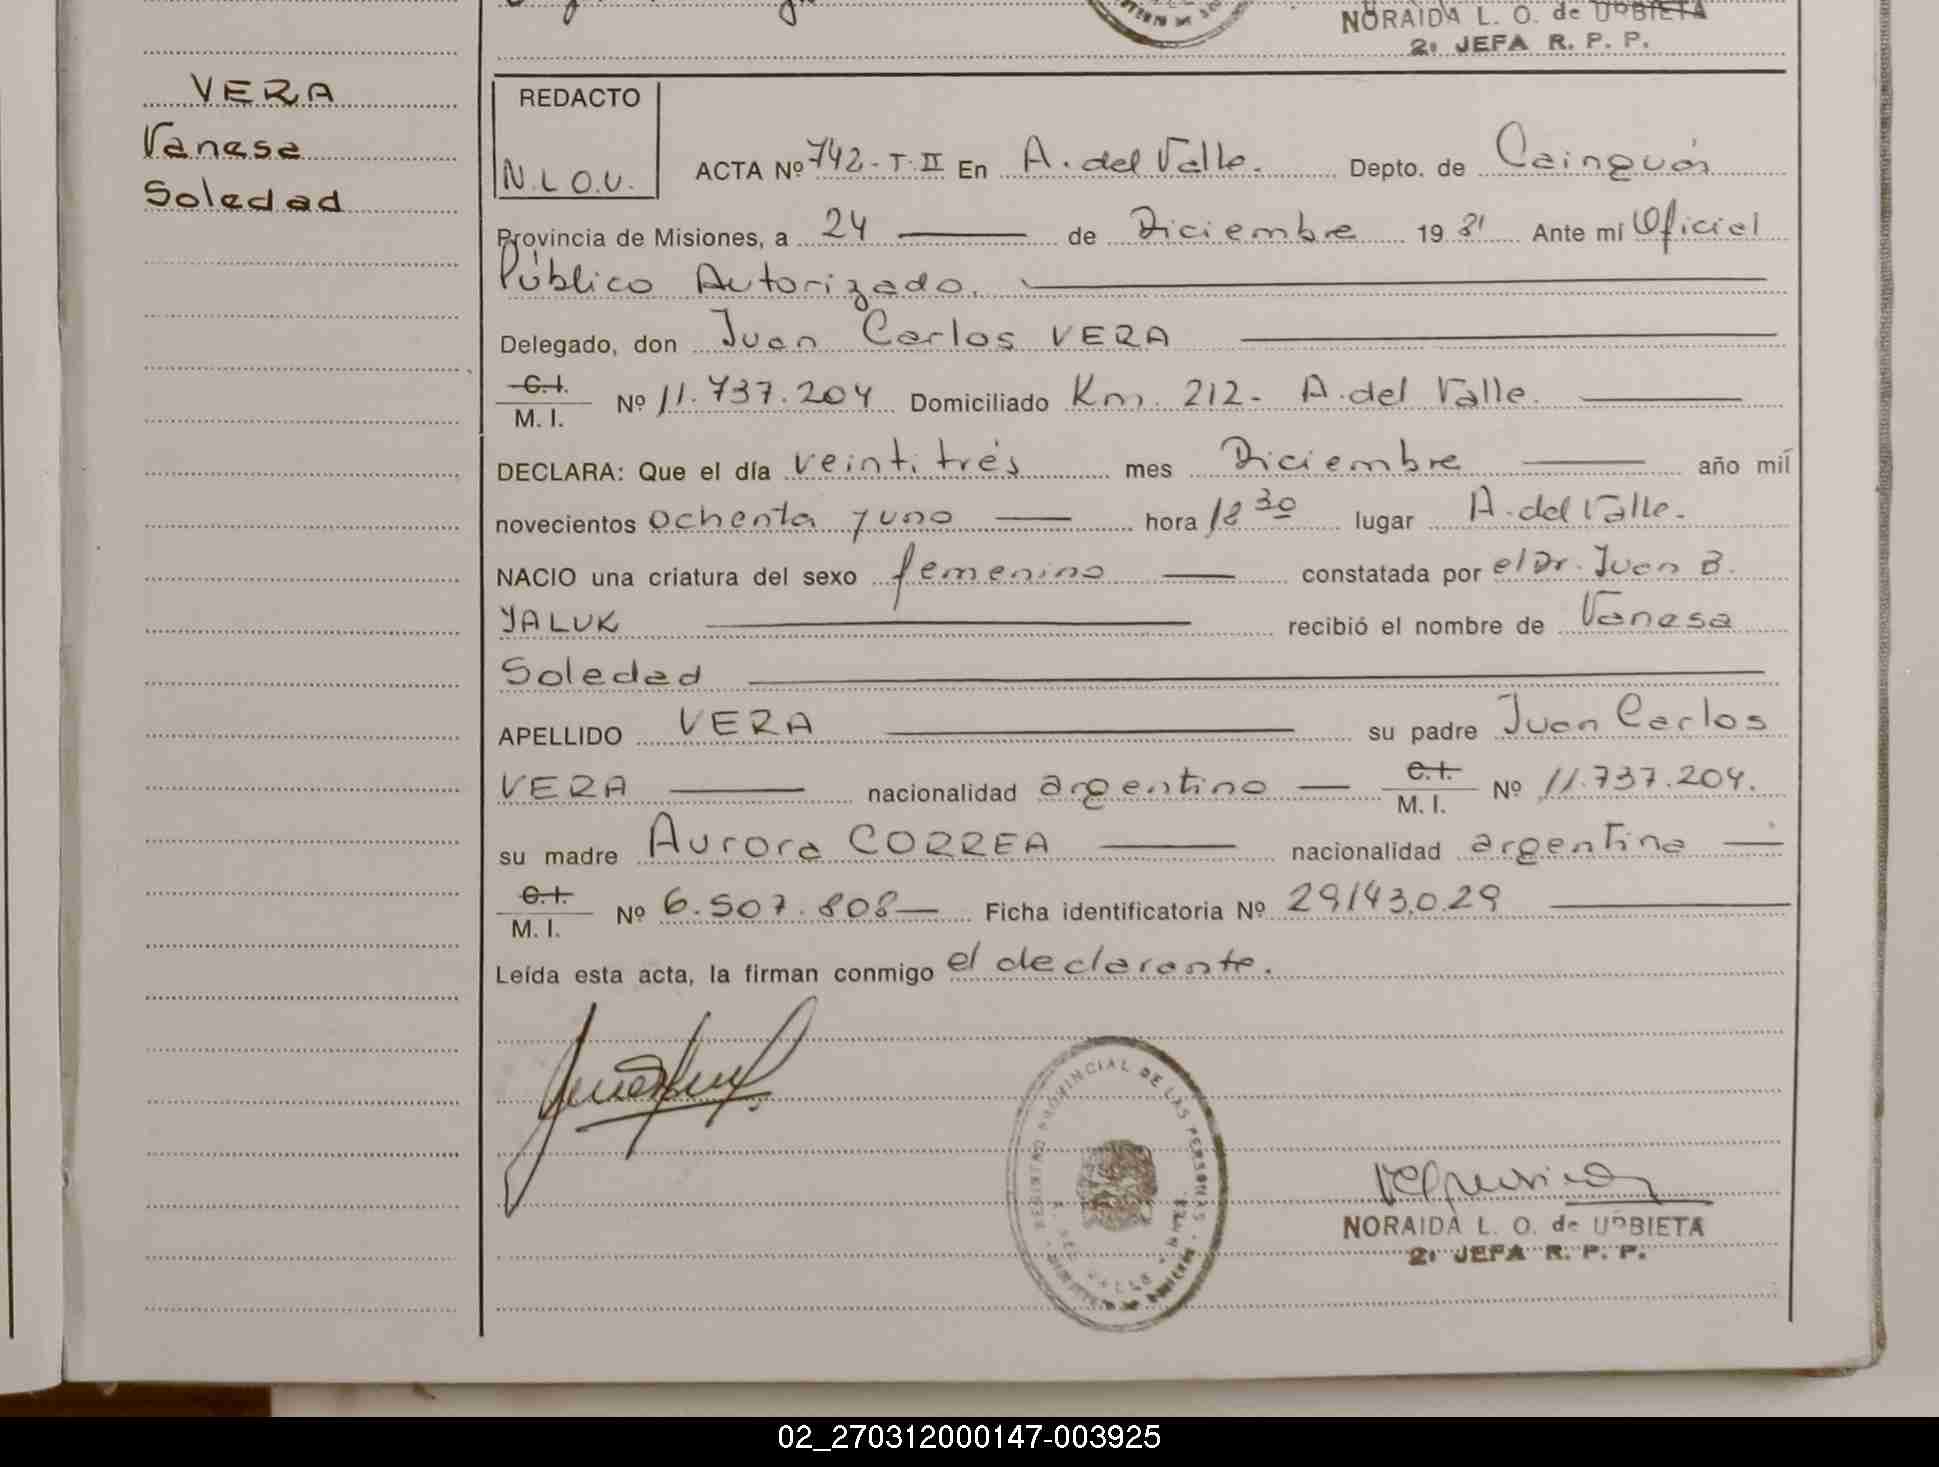 NORAIDA L. O. de URBIETA
2ª JEFA R. P. P.
VERA
Vanesa
Soledad
REDACTO
N.L.O.U.
ACTA Nº 742-T.II En A. del Valle. Depto. de Cainguás
Provincia de Misiones, a 24 de Diciembre 1981 Ante mí Oficial
Público Autorizado.
Delegado, don Juan Carlos VERA
C.I.
M. I. Nº 11.737.204 Domiciliado Km. 212- A. del Valle.
DECLARA: Que el día veintitrés mes Diciembre año mil
novecientos ochenta y uno hora 18 30 lugar A. del Valle.
NACIO una criatura del sexo femenino constatada por el Dr. Juan B.
YALUK recibió el nombre de Vanesa
Soledad
APELLIDO VERA su padre Juan Carlos
VERA nacionalidad argentino C.I. M. I. Nº 11.737.204.
su madre Aurora CORREA nacionalidad argentina
C.I.
M. I. Nº 6.507.808 Ficha identificatoria Nº 29143.0.29
Leída esta acta, la firman conmigo el declarante.
REGISTRO PROVINCIAL DE LAS PERSONAS
NORAIDA L. O. de URBIETA
2ª JEFA R. P. P.
02_270312000147-003925